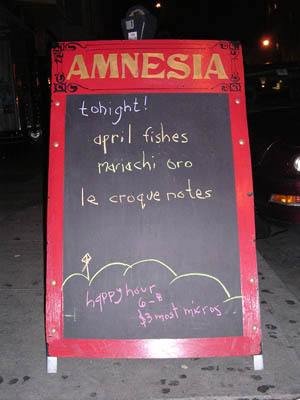 AMNESIA
tonight!
april fishes
mariachi oro
le croque notes
happy hour
6-8
$3 most micros